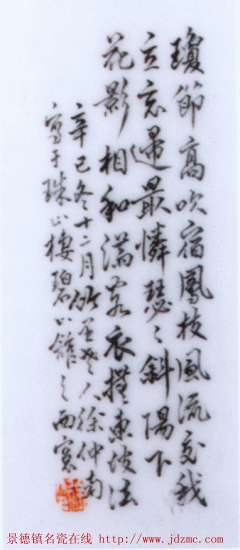 瓊節高吹宿鳳枝風流交我
立忘歸最憐瑟〻斜陽下
花影相和滿客衣東坡法
辛已冬十二月竹里老人徐仲南
寫于珠山棲碧山館之西窗
景德镇名瓷在线 http://www.jdzmc.com